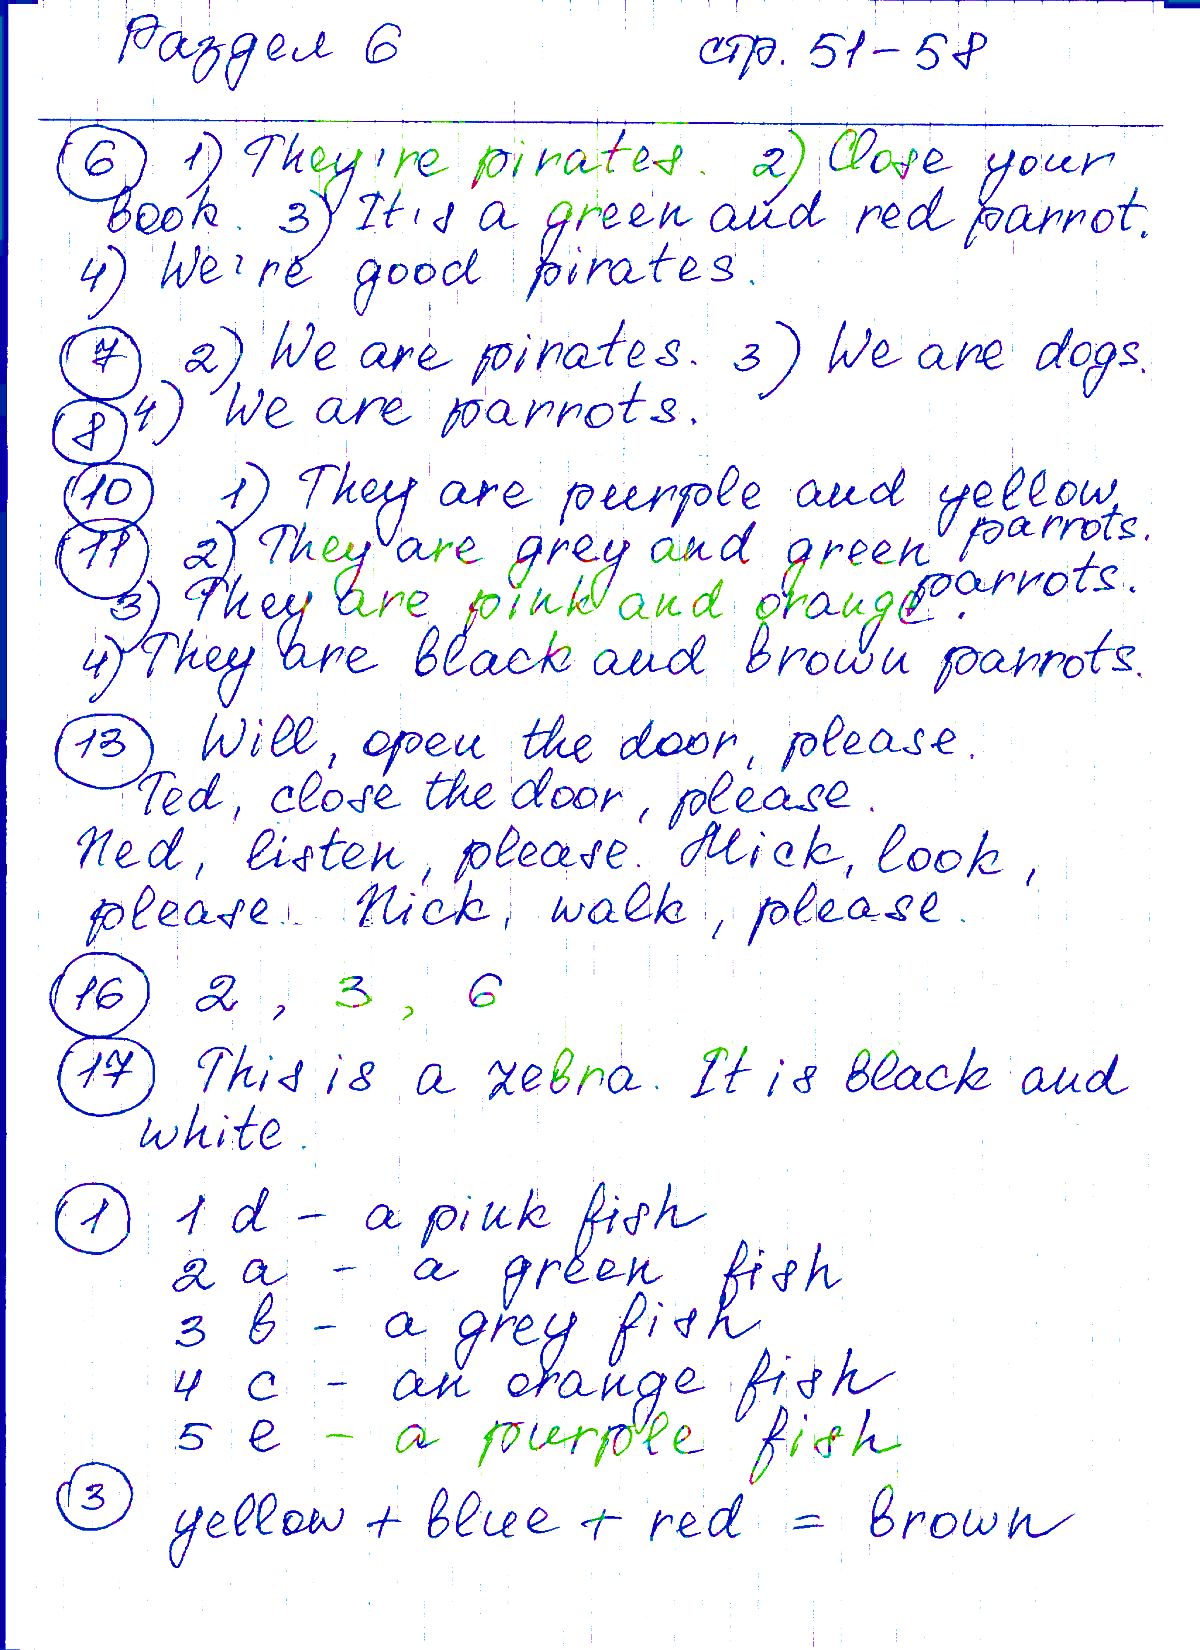 Раздел 6 стр. 51-58
6 1) They're pirates. 2) Close your
book. 3) It's a green and red parrot.
4) We're good pirates.
7 2) We are pirates. 3) We are dogs.
8 4) We are parrots.
10 1) They are purple and yellow
parrots.
11 2) They are grey and green
parrots.
3) They are pink and orange.
4) They are black and brown parrots.
13 Will, open the door, please.
Ted, close the door, please.
Ned, listen, please. Mick, look,
please. Nick, walk, please.
16 2, 3, 6
17 This is a zebra. It is black and
white.
1 1 d - a pink fish
2 a - a green fish
3 b - a grey fish
4 c - an orange fish
5 e - a purple fish
3 yellow + blue + red = brown